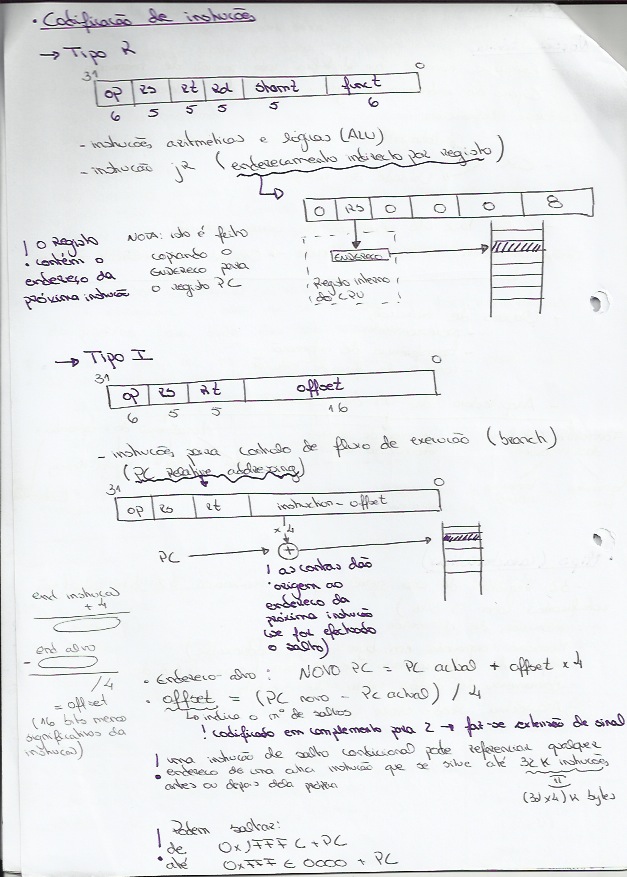 • Codificação de instruções
→ Tipo R
31 0
op rs rt rd shamt funct
6 5 5 5 5 6
- instruções aritmeticas e lógicas (ALU)
- instrução jr (endereçamento indirecto por registo)
0 rs 0 0 0 8
! O Registo
contém o
endereço da
próxima instrução
NOTA: isto é feito
copiando o
ENDEREÇO para
o registo PC
ENDEREÇO
Registo interno
do CPU
→ Tipo I
31 0
op rs rt offset
6 5 5 16
- instruções para controlo de fluxo de execução (branch)
(PC Relative addressing)
31 0
op rs rt instruction-offset
x 4
PC +
! as contas dão
origem ao
endereço da
próxima instrução
(se for efectuado
o salto)
end instrução
+ 4
end alvo
-
/ 4
= offset
(16 bits menos
significativos da
instrução)
• Endereço-alvo: NOVO PC = PC actual + offset x 4
• offset = (PC novo - PC actual) / 4
↳ indica o nº de saltos
! codificado em complemento para 2 → faz-se extensão de sinal
! uma instrução de salto condicional pode referenciar qualquer
endereço de uma outra instrução que se situe até 32K instruções
antes ou depois dela própria
(32x4) K bytes
! Podem saltar:
de 0x1FFFC + PC
até 0xFFFE 0000 + PC